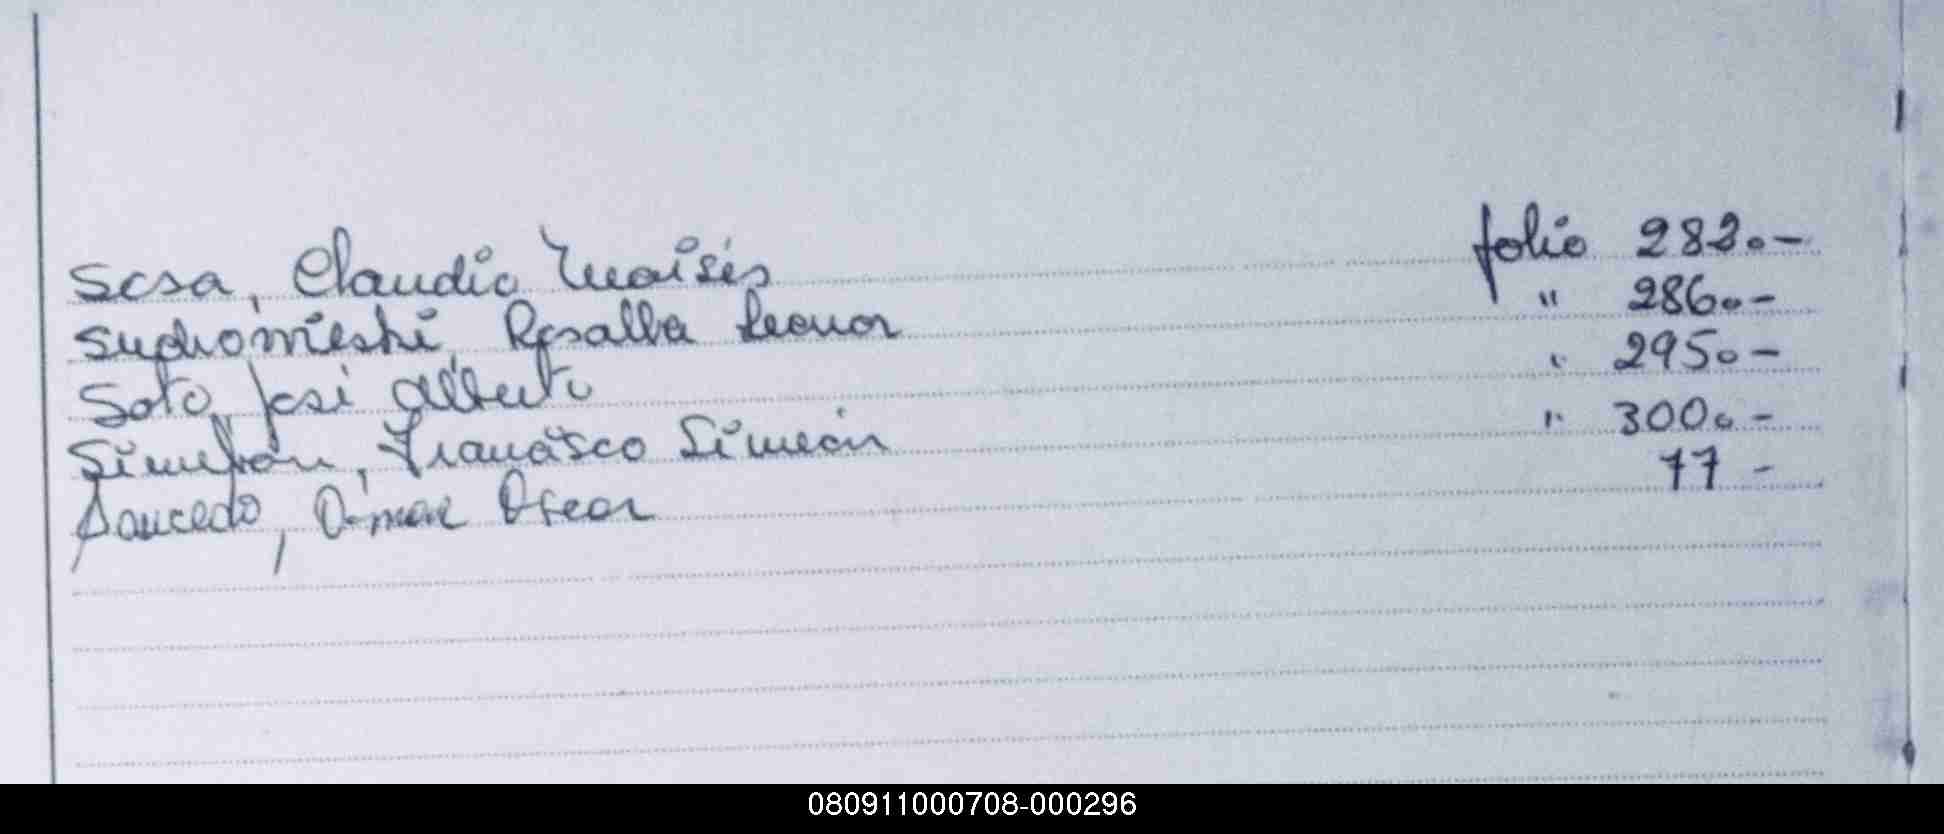 Sosa, Claudio Moisés folio 282.-
Suchomeski, Rosalba Leonor " 286.-
Soto, José Alberto " 295.-
Simeson, Francisco Simeón " 300.-
Saucedo, Omar Oscar 77-
080911000708-000296